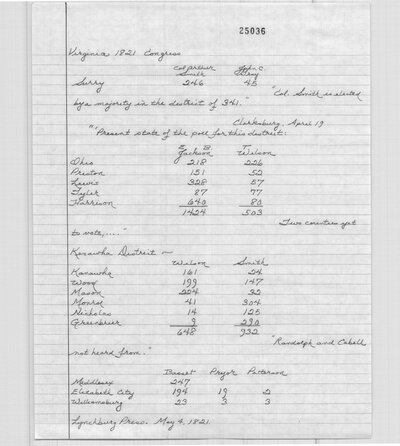 25036
Virginia 1821 Congress
Col Arthur John C.
Smith Gray
Surry 246 45
"Col. Smith is elected
by a majority in the destrect of 341."
Clarksburg, April 19
"Present state of the poll for this destrect:
E. B. T.
Jackson Wilson
Ohio 218 226
Preston 151 52
Lewis 328 57
Tyler 87 77
Harrison 640 80
1424 503
Two counties yet
to vote,...."
Kanawha Destrect —
Wilson Smith
Kanawha 161 24
Wood 199 147
Mason 224 32
Monroe 41 304
Nicholas 14 125
Greenbrier 9 290
648 932
"Randolph and Cabell
not heard from."
Basset Pryor Patterson
Middlesex 247
Elizabeth City 194 19 2
Williamsburg 23 3 3
Lynchburg Press. May 4, 1821.